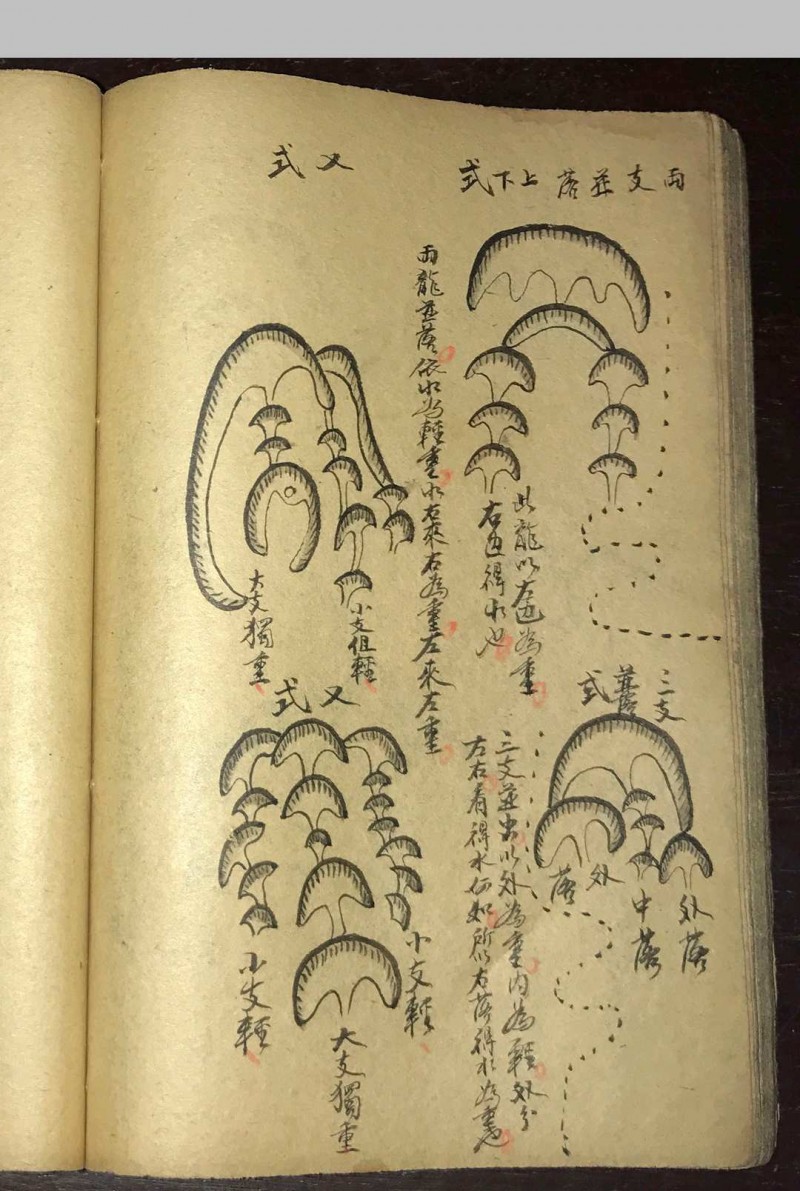 兩支並落上下式
此龍以右邊為重
右邊得水也
兩龍並落依水為輕重水右來右為重左來左重
三支
並落式
外落
中落
外落
三支並出以外為重內為輕外分
左右看得水何如所以右落得水為重也
又式
小支俱輕
大支獨重
又式
小支輕
大支獨重
小支輕